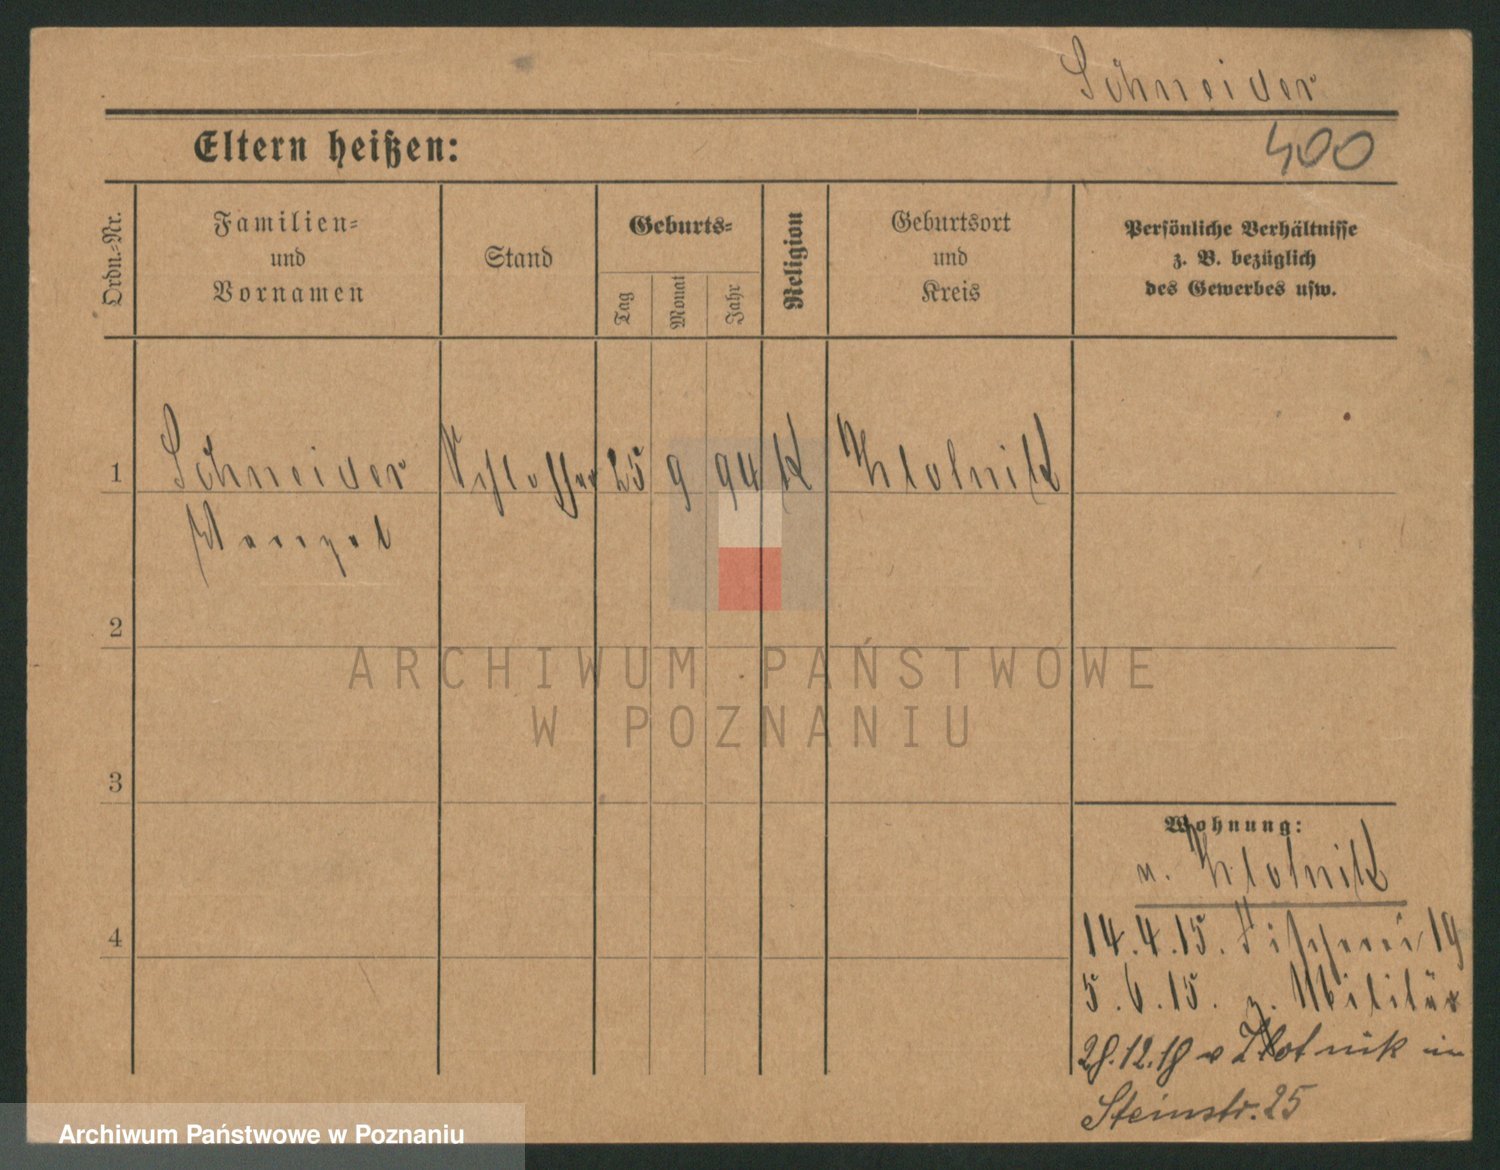 Schneider
400
Eltern heißen:
Ordn.=Nr.
Familien=
und
Vornamen
Stand
Geburts=
Tag
Monat
Jahr
Religion
Geburtsort
und
Kreis
Persönliche Verhältnisse
z. B. bezüglich
des Gewerbes usw.
1 Schneider Schlosser 25 9 94 K Zlotnik
Wenzel
2
ARCHIWUM PAŃSTWOWE
W POZNANIU
3
Wohnung:
n. Zlotnik
4
14.4.15. Fischerei 19
5.6.15. z. Militär
28.12.18 v Zlotnik in
Steinstr. 25
Archiwum Państwowe w Poznaniu